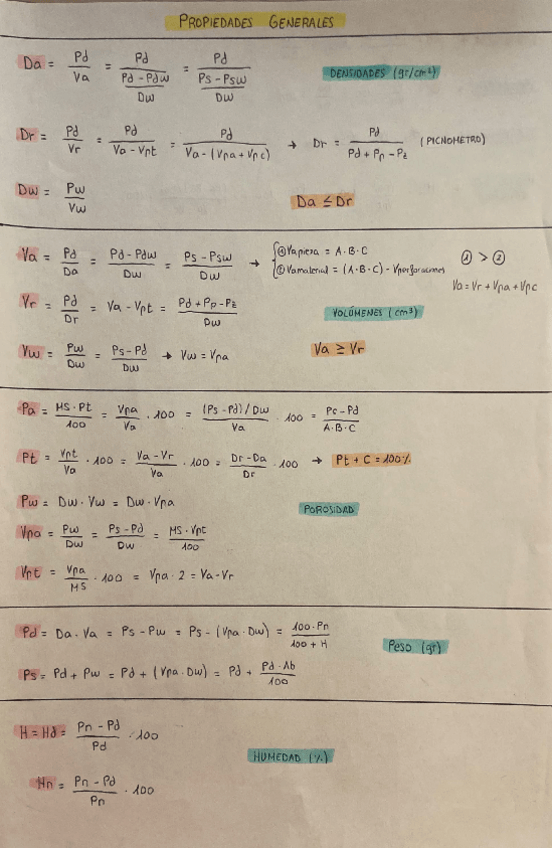 PROPIEDADES GENERALES
Da = Pd/Va = Pd/((Pd-Pdw)/Dw) = Pd/((Ps-Psw)/Dw)
DENSIDADES (gr/cm³)
Dr = Pd/Vr = Pd/(Va-Vpt) = Pd/(Va-(Vpa+Vpc)) → Dr = Pd/(Pd+Pp-Pz) (PICNOMETRO)
Dw = Pw/Vw
Da ≤ Dr
Va = Pd/Da = (Pd-Pdw)/Dw = (Ps-Psw)/Dw → { ① Va pieza = A·B·C
② Va material = (A·B·C) - Vperforaciones
① > ②
Va = Vr + Vpa + Vpc
Vr = Pd/Dr = Va-Vpt = (Pd+Pp-Pz)/Dw
VOLÚMENES (cm³)
Vw = Pw/Dw = (Ps-Pd)/Dw → Vw = Vpa
Va ≥ Vr
Pa = (MS·Pt)/100 = Vpa/Va · 100 = ((Ps-Pd)/Dw)/Va · 100 = (Pc-Pd)/(A·B·C)
Pt = Vpt/Va · 100 = (Va-Vr)/Va · 100 = (Dr-Da)/Dr · 100 → Pt + C = 100%
Pw = Dw · Vw = Dw · Vpa
POROSIDAD
Vpa = Pw/Dw = (Ps-Pd)/Dw = (MS·Vpt)/100
Vpt = Vpa/MS · 100 = Vpa · 2 = Va-Vr
Pd = Da · Va = Ps - Pw = Ps - (Vpa · Dw) = (100·Pn)/(100+H)
Peso (gr)
Ps = Pd + Pw = Pd + (Vpa · Dw) = Pd + (Pd·Ab)/100
H = Hd = (Pn-Pd)/Pd · 100
HUMEDAD (%)
Hn = (Pn-Pd)/Pn · 100